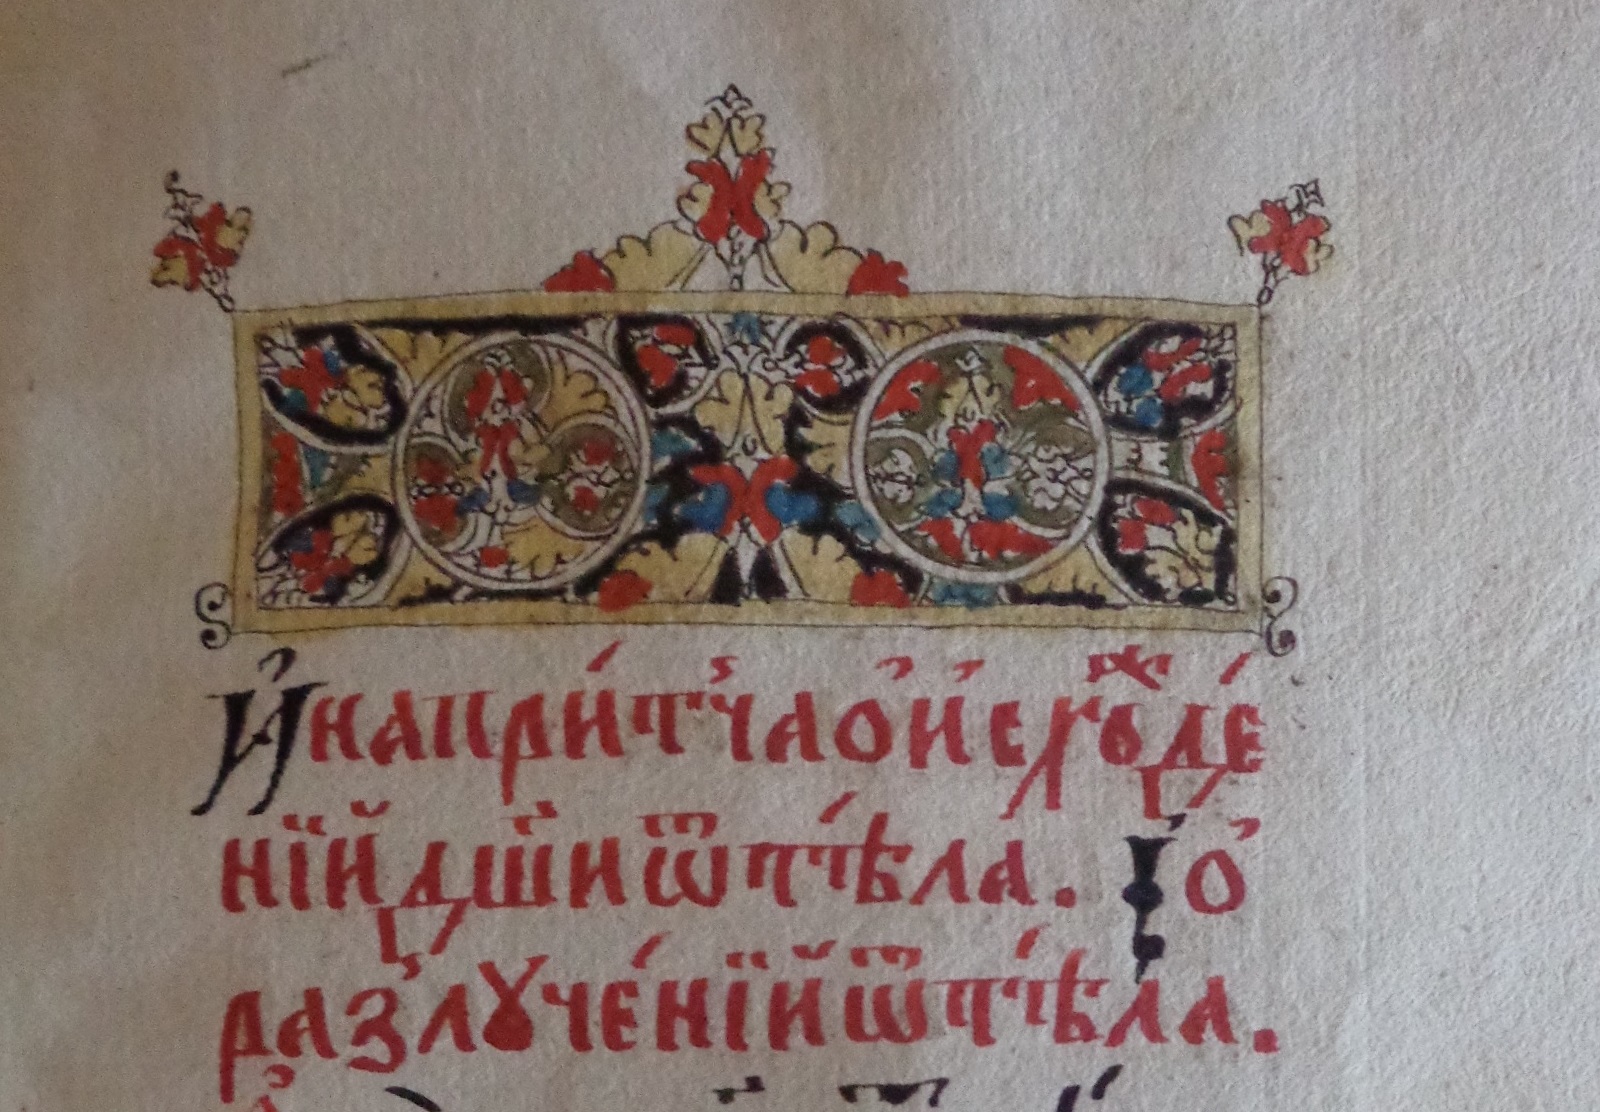 И҆напри́тчао҆и҆схо́жде́
нїйдш҃иѿтѣ́ла. Іо҆
разлꙋче́нїйѿтѣ́ла.